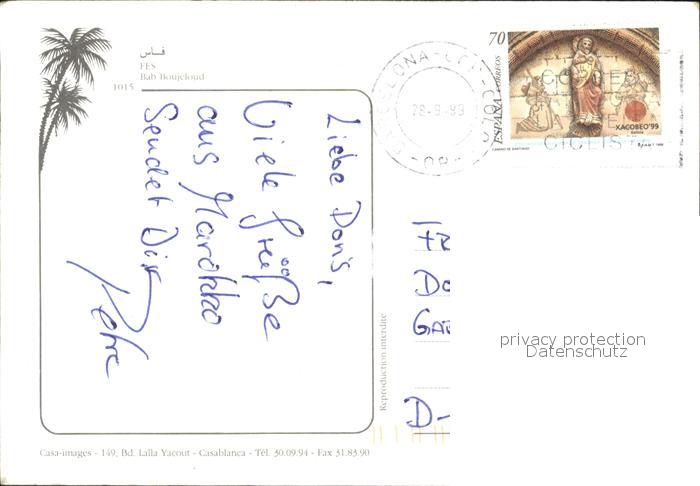 فاس
FES
Bab Boujeloud
1015
Liebe Doris,
Viele Grüße
aus Marokko
Sendet Dir
Petra
BARCELONA
28-9-99
08
70
ESPAÑA CORREOS
XACOBEO'99
Galicia
CAMINO DE SANTIAGO
CICLIS
FR
Do
GAR
D-
privacy protection
Datenschutz
Reproduction interdite
Casa-images - 149, Bd. Lalla Yacout - Casablanca - Tél. 30.09.94 - Fax 31.83.90